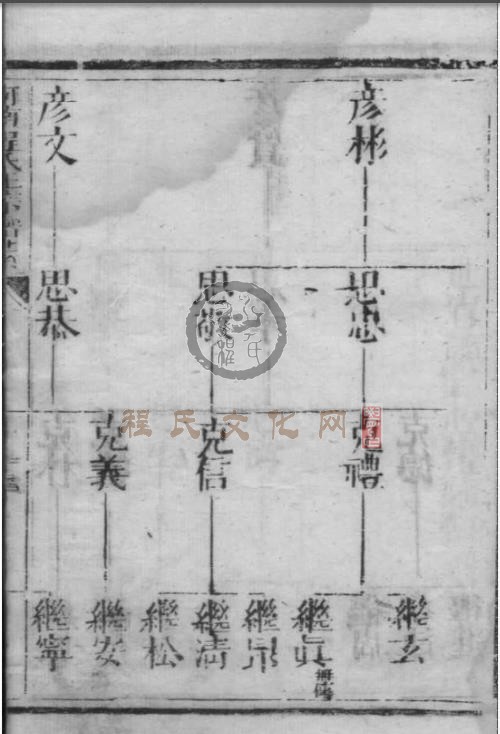 彦彬
彦文
思忠
思敬
思恭
克禮
克信
克義
繼玄
繼真
繼宗
繼清
繼松
繼安
繼寧
程氏文化网